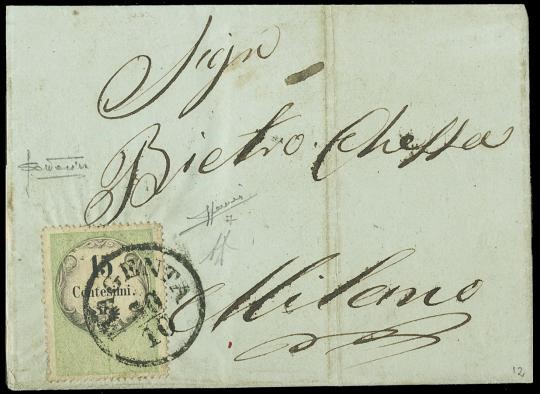 Sig.n
Pietro Chessa
Milano
15
Centesimi.
MAGENTA
10
12